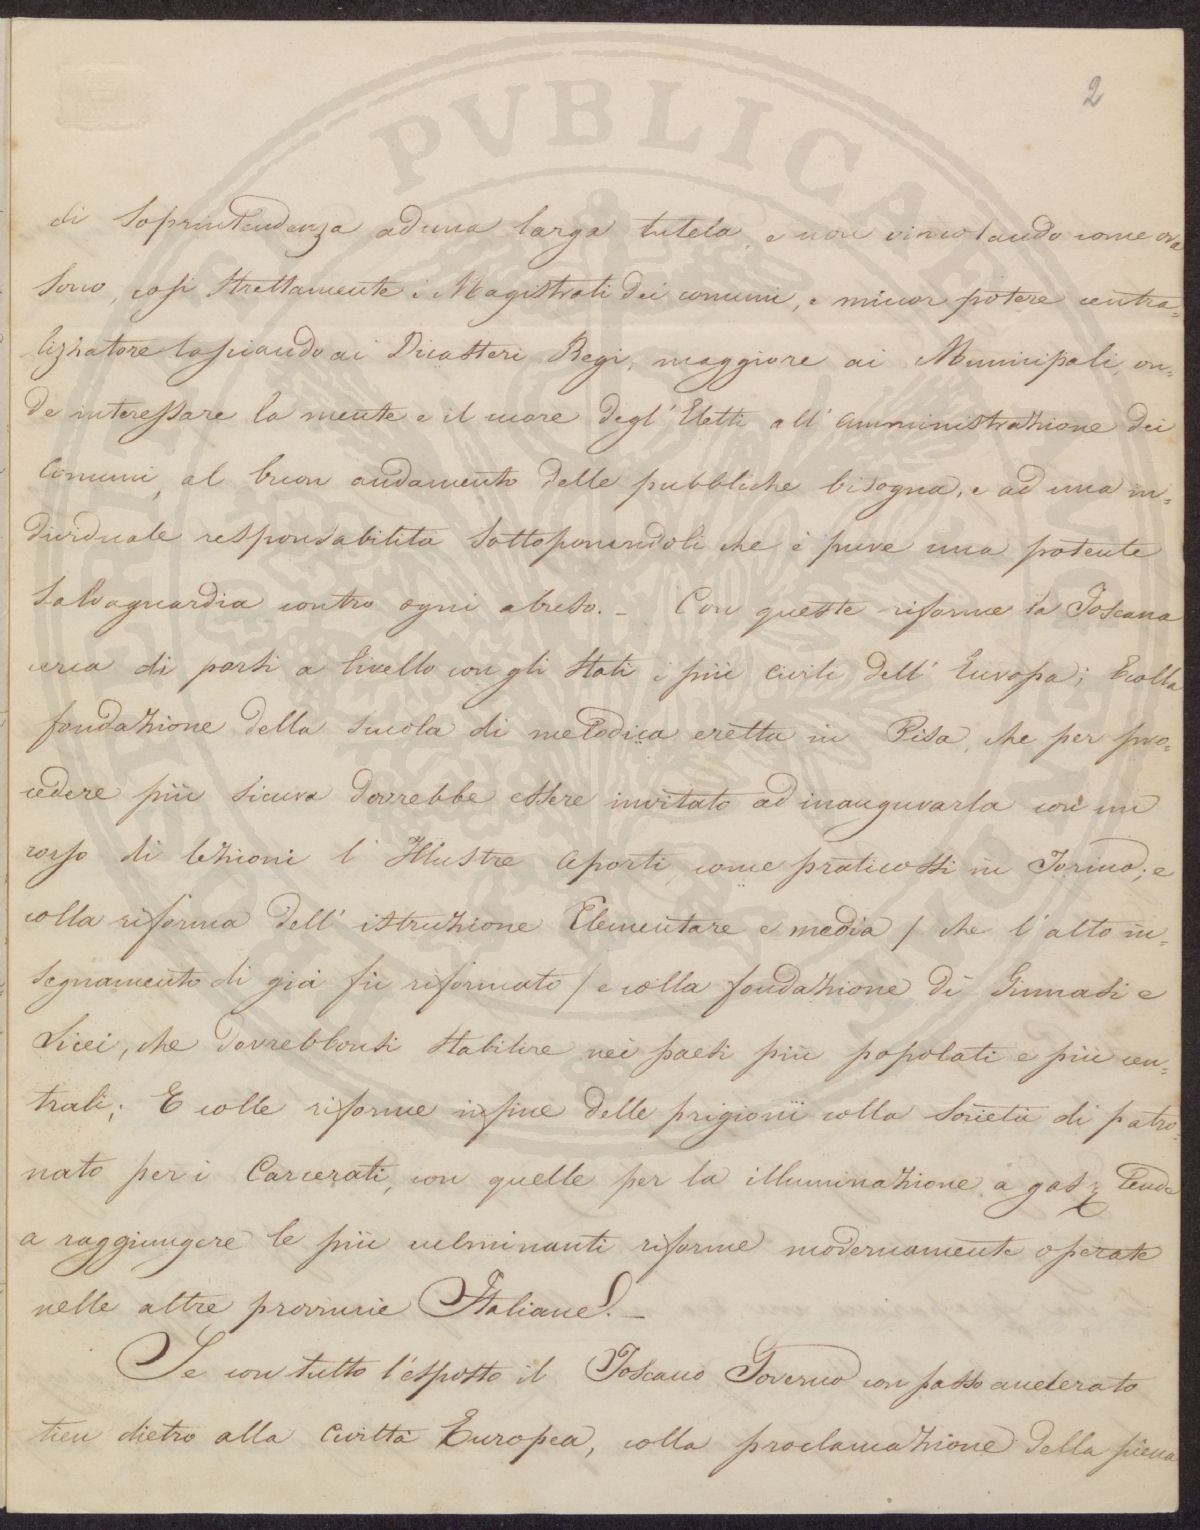 2
di soprintendenza ad una larga tutela, e non vincolando come ora
sono, così strettamente i Magistrati dei comuni, e minor potere centra=
lizzatore lasciando ai Dicasteri Regi, maggiore ai Municipali, on=
de interessare la mente e il cuore degl'Eletti all'amministrazione dei
Comuni, al buon andamento delle pubbliche bisogna, e ad una in=
dividuale responsabilità sottoponendoli che è pure una potente
salvaguardia contro ogni abuso. _ Con queste riforme la Toscana
cerca di porsi a livello con gli stati i più civili dell'Europa; E colla
fondazione della scuola di metodica eretta in Pisa, che per pro=
cedere più sicura dovrebbe essere invitato ad inaugurarla con un
corso di lezioni l'Illustre Aporti, come praticossi in Torino; e
colla riforma dell'istruzione Elementare e media / che l'alto in=
segnamento di già fù riformato / e colla fondazione di Ginnasi e
Licei, che dovrebbonsi stabilire nei paesi più popolati e più cen=
trali; E colle riforme infine delle prigioni colla società di patro=
nato per i Carcerati, con quelle per la illuminazione a gas; tende
a raggiungere le più culminanti riforme modernamente operate
nelle altre provincie Italiane. _
Se con tutto l'esposto il Toscano Governo con passo accelerato
tien dietro alla Civiltà Europea, colla proclamazione della piena
PVBLICAE